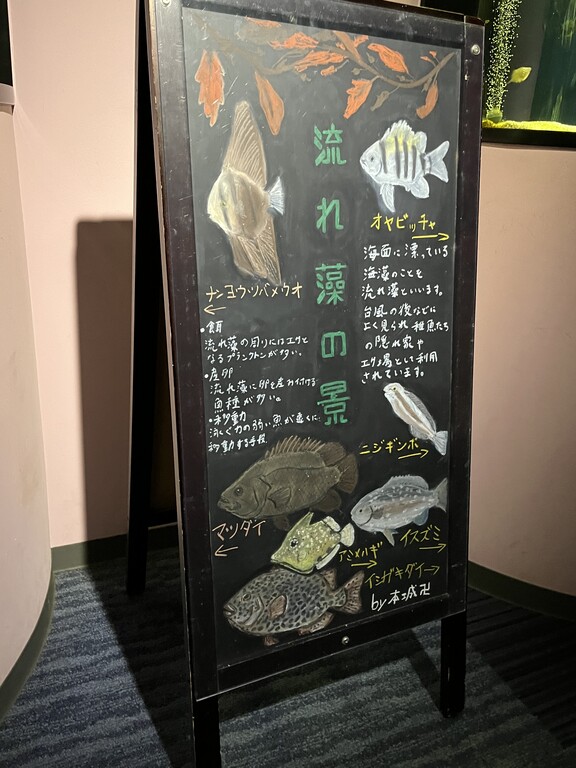 流れ藻の景
オヤビッチャ
海面に漂っている
海藻のことを
流れ藻といいます。
台風の後などに
よく見られ稚魚たち
の隠れ家や
エサ場として利用
されています。
ナンヨウツバメウオ
・食餌
流れ藻の周りにはエサと
なるプランクトンが多い。
・産卵
流れ藻に卵を産み付ける
魚種が多い。
・移動
泳ぐ力の弱い魚が遠くに
移動する手段
ニジギンポ
マツダイ
イスズミ
アミメハギ
イシガキダイ
by 本城